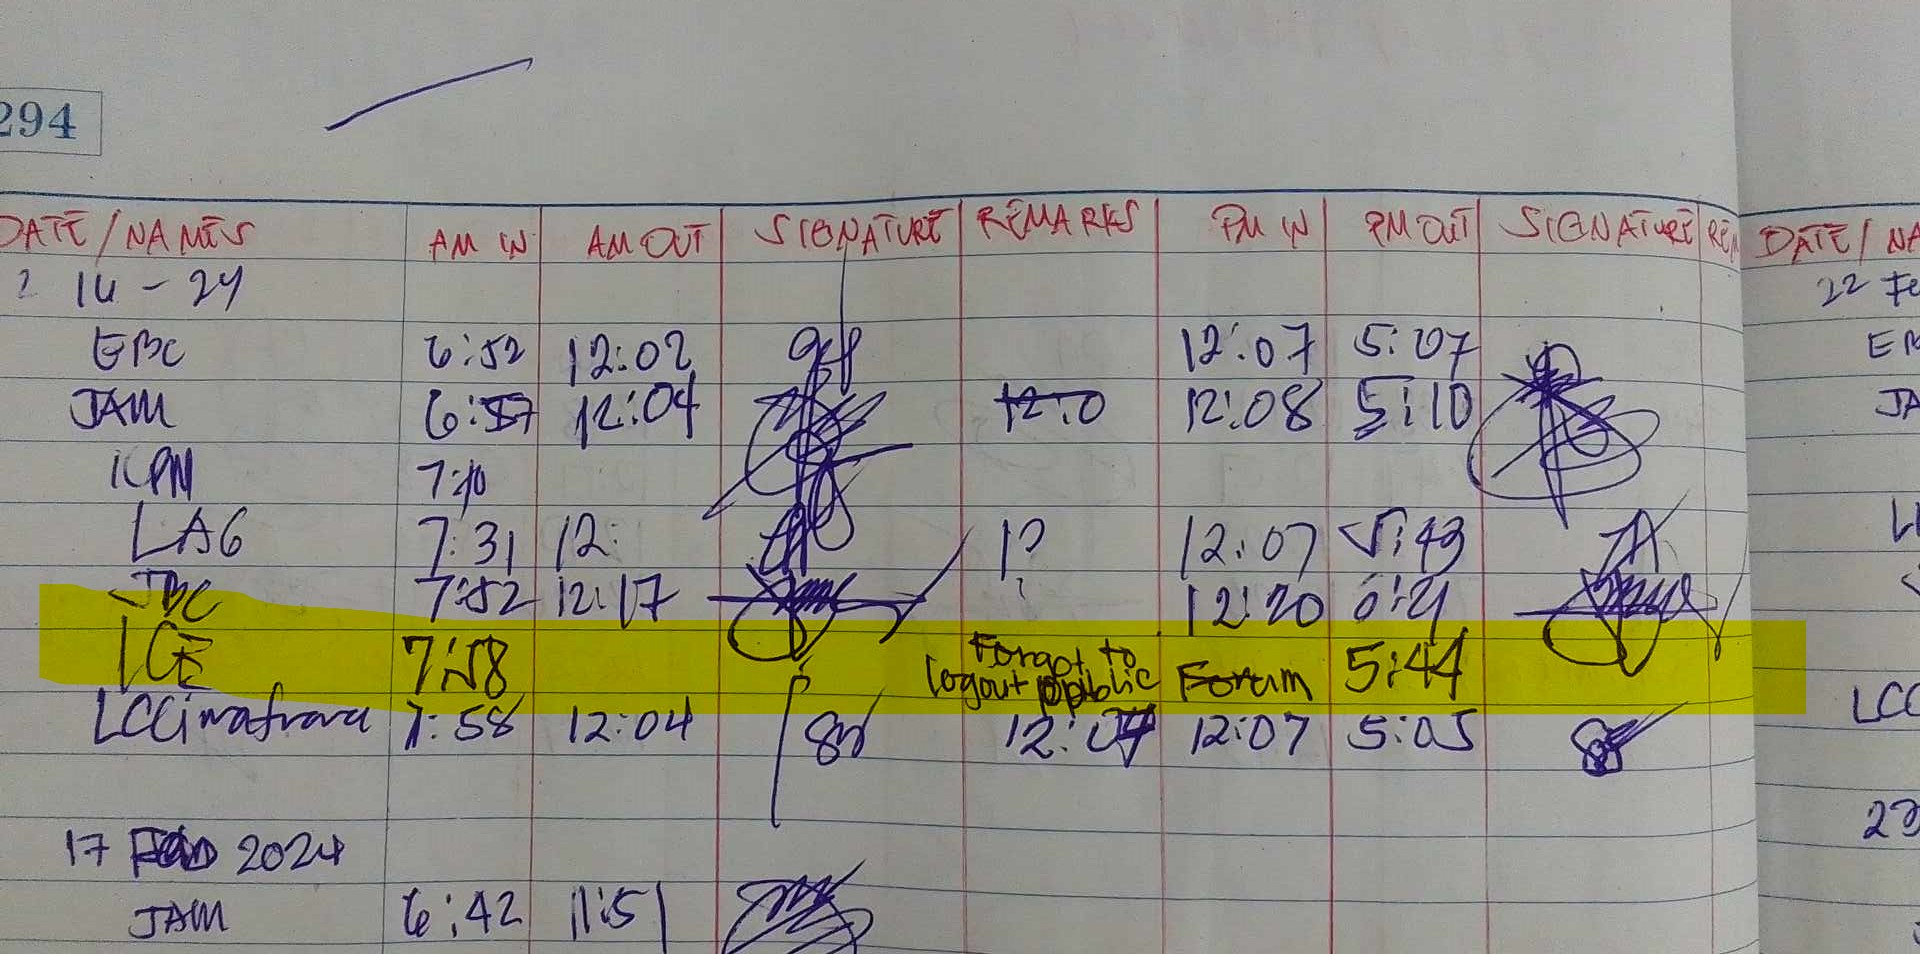 294
DATE/NAMES AM IN AM OUT SIGNATURE REMARKS PM IN PM OUT SIGNATURE REM DATE/NA
2 14-24 22 Fe
EBC 6:52 12:02 12:07 5:07 EB
JAM 6:57 12:04 12:0 12:08 5:10 JA
KPM 7:10
LAG 7:31 12: 1? 12:07 5:43
JBC 7:52 12:17 ? 12:20
LCE 7:58 Forgot to logout public Forum 5:44
7:58 12:04 12:07 12:07 5:05 LCC
17 2024 23
JAM 6:42 11:51